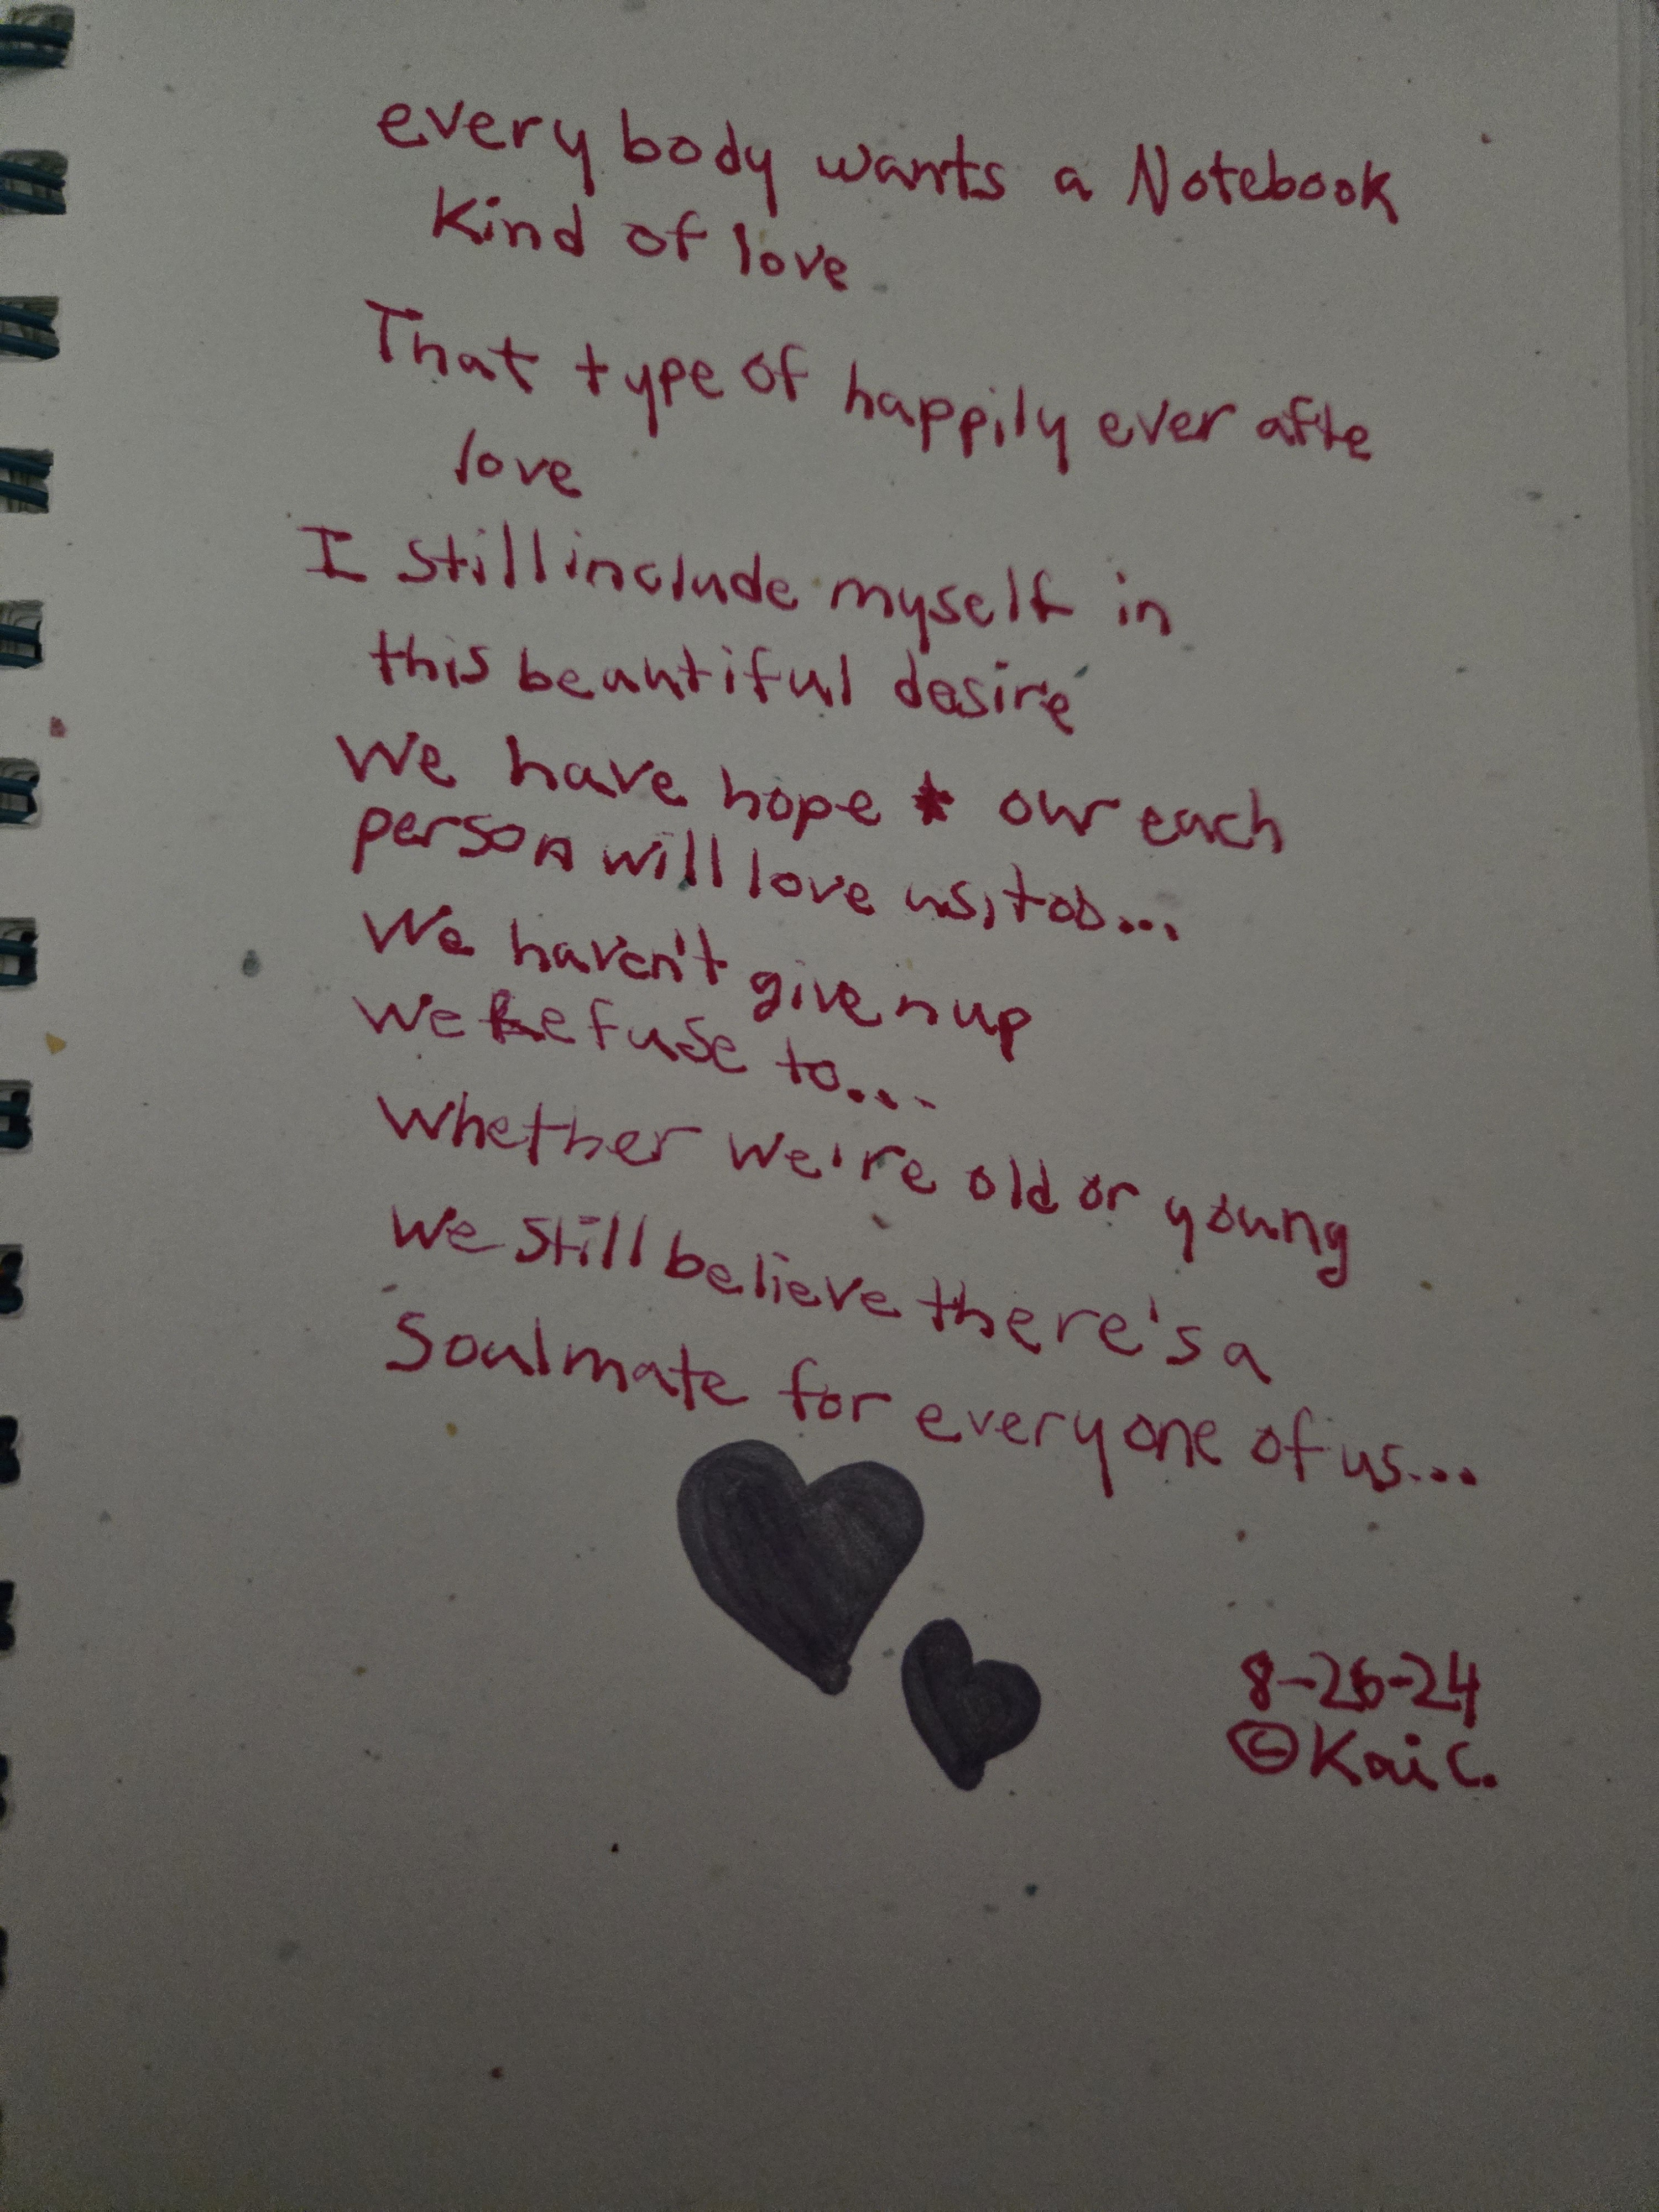 everybody wants a Notebook
Kind of love
That type of happily ever afte
love
I still include myself in
this beautiful desire
We have hope our each
person will love us, too...
We haven't given up
We Refuse to...
Whether we're old or young
We still believe there's a
Soulmate for everyone of us...
8-26-24
©Kai C.